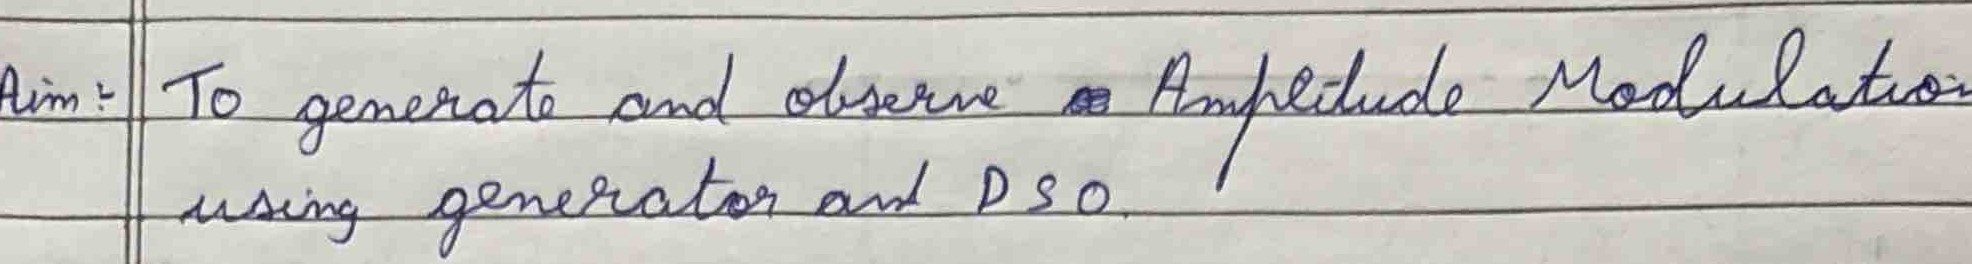 Aim:- To generate and observe Amplitude Modulation
using generator and DSO.